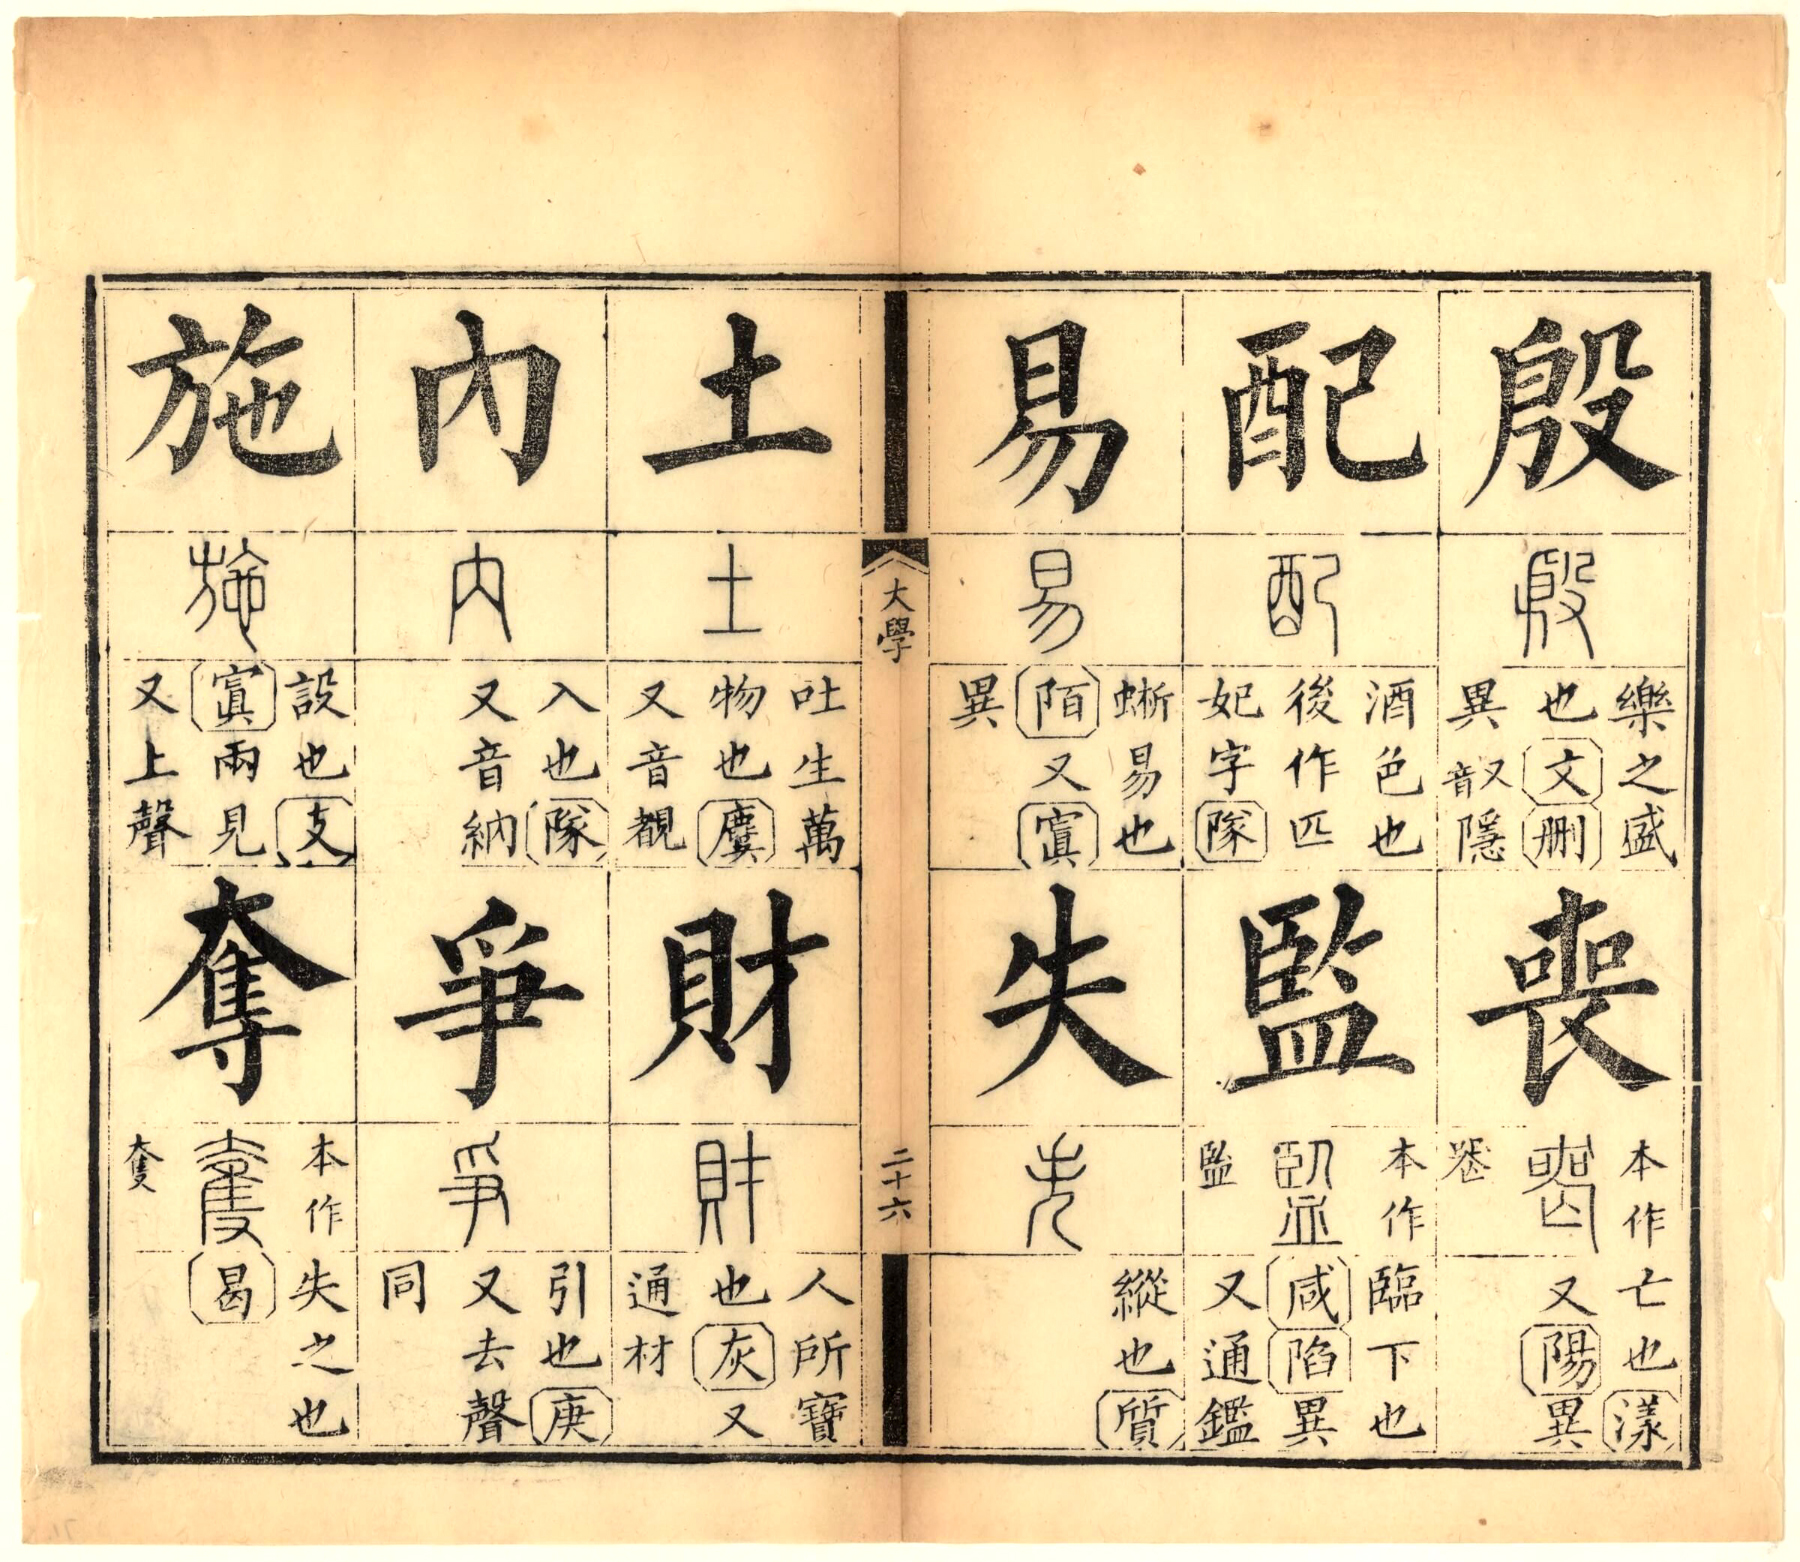 殷
殷
樂之盛
也文刪
異又音隱
喪
本作
喪
亡也漾
又陽異
配
配
酒色也
後作匹
妃字隊
監
本作
監
監
臨下也
咸陷異
又通鑑
易
易
蜥易也
陌又寘
異
失
失
縱也質
大學
二十六
土
土
吐生萬
物也麌
又音覩
財
財
人所寶
也灰又
通材
內
內
入也隊
又音納
爭
爭
引也庚
又去聲
同
施
施
設也支
寘兩見
又上聲
奪
本作
奪
失之也
曷